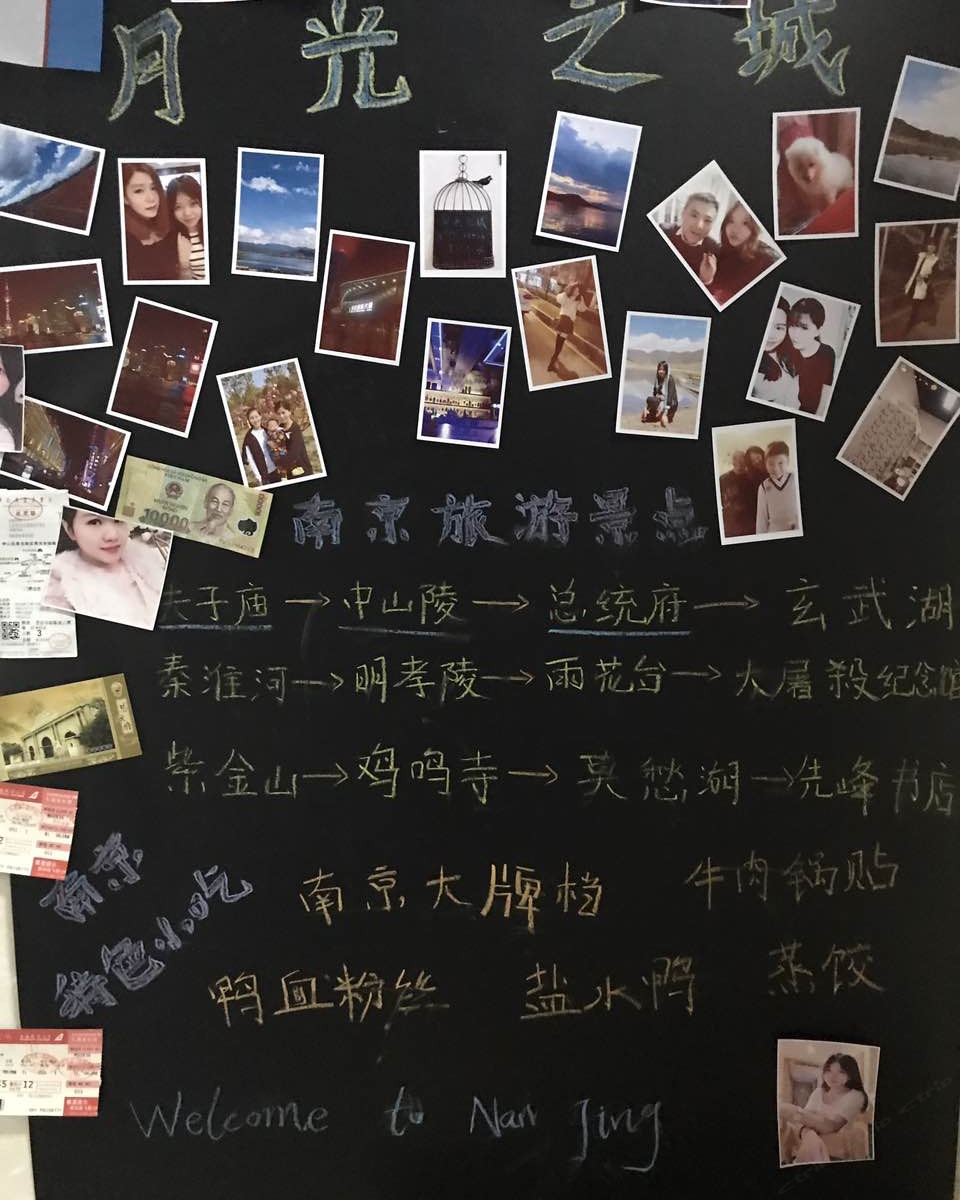 月光之城
10000
南京旅游景点
夫子庙→中山陵→总统府→玄武湖
秦淮河→明孝陵→雨花台→大屠殺纪念馆
紫金山→鸡鸣寺→莫愁湖→先峰书店
南京
特色小吃
南京大牌档 牛肉锅贴
鸭血粉丝 盐水鸭 蒸饺
Welcome to Nan Jing